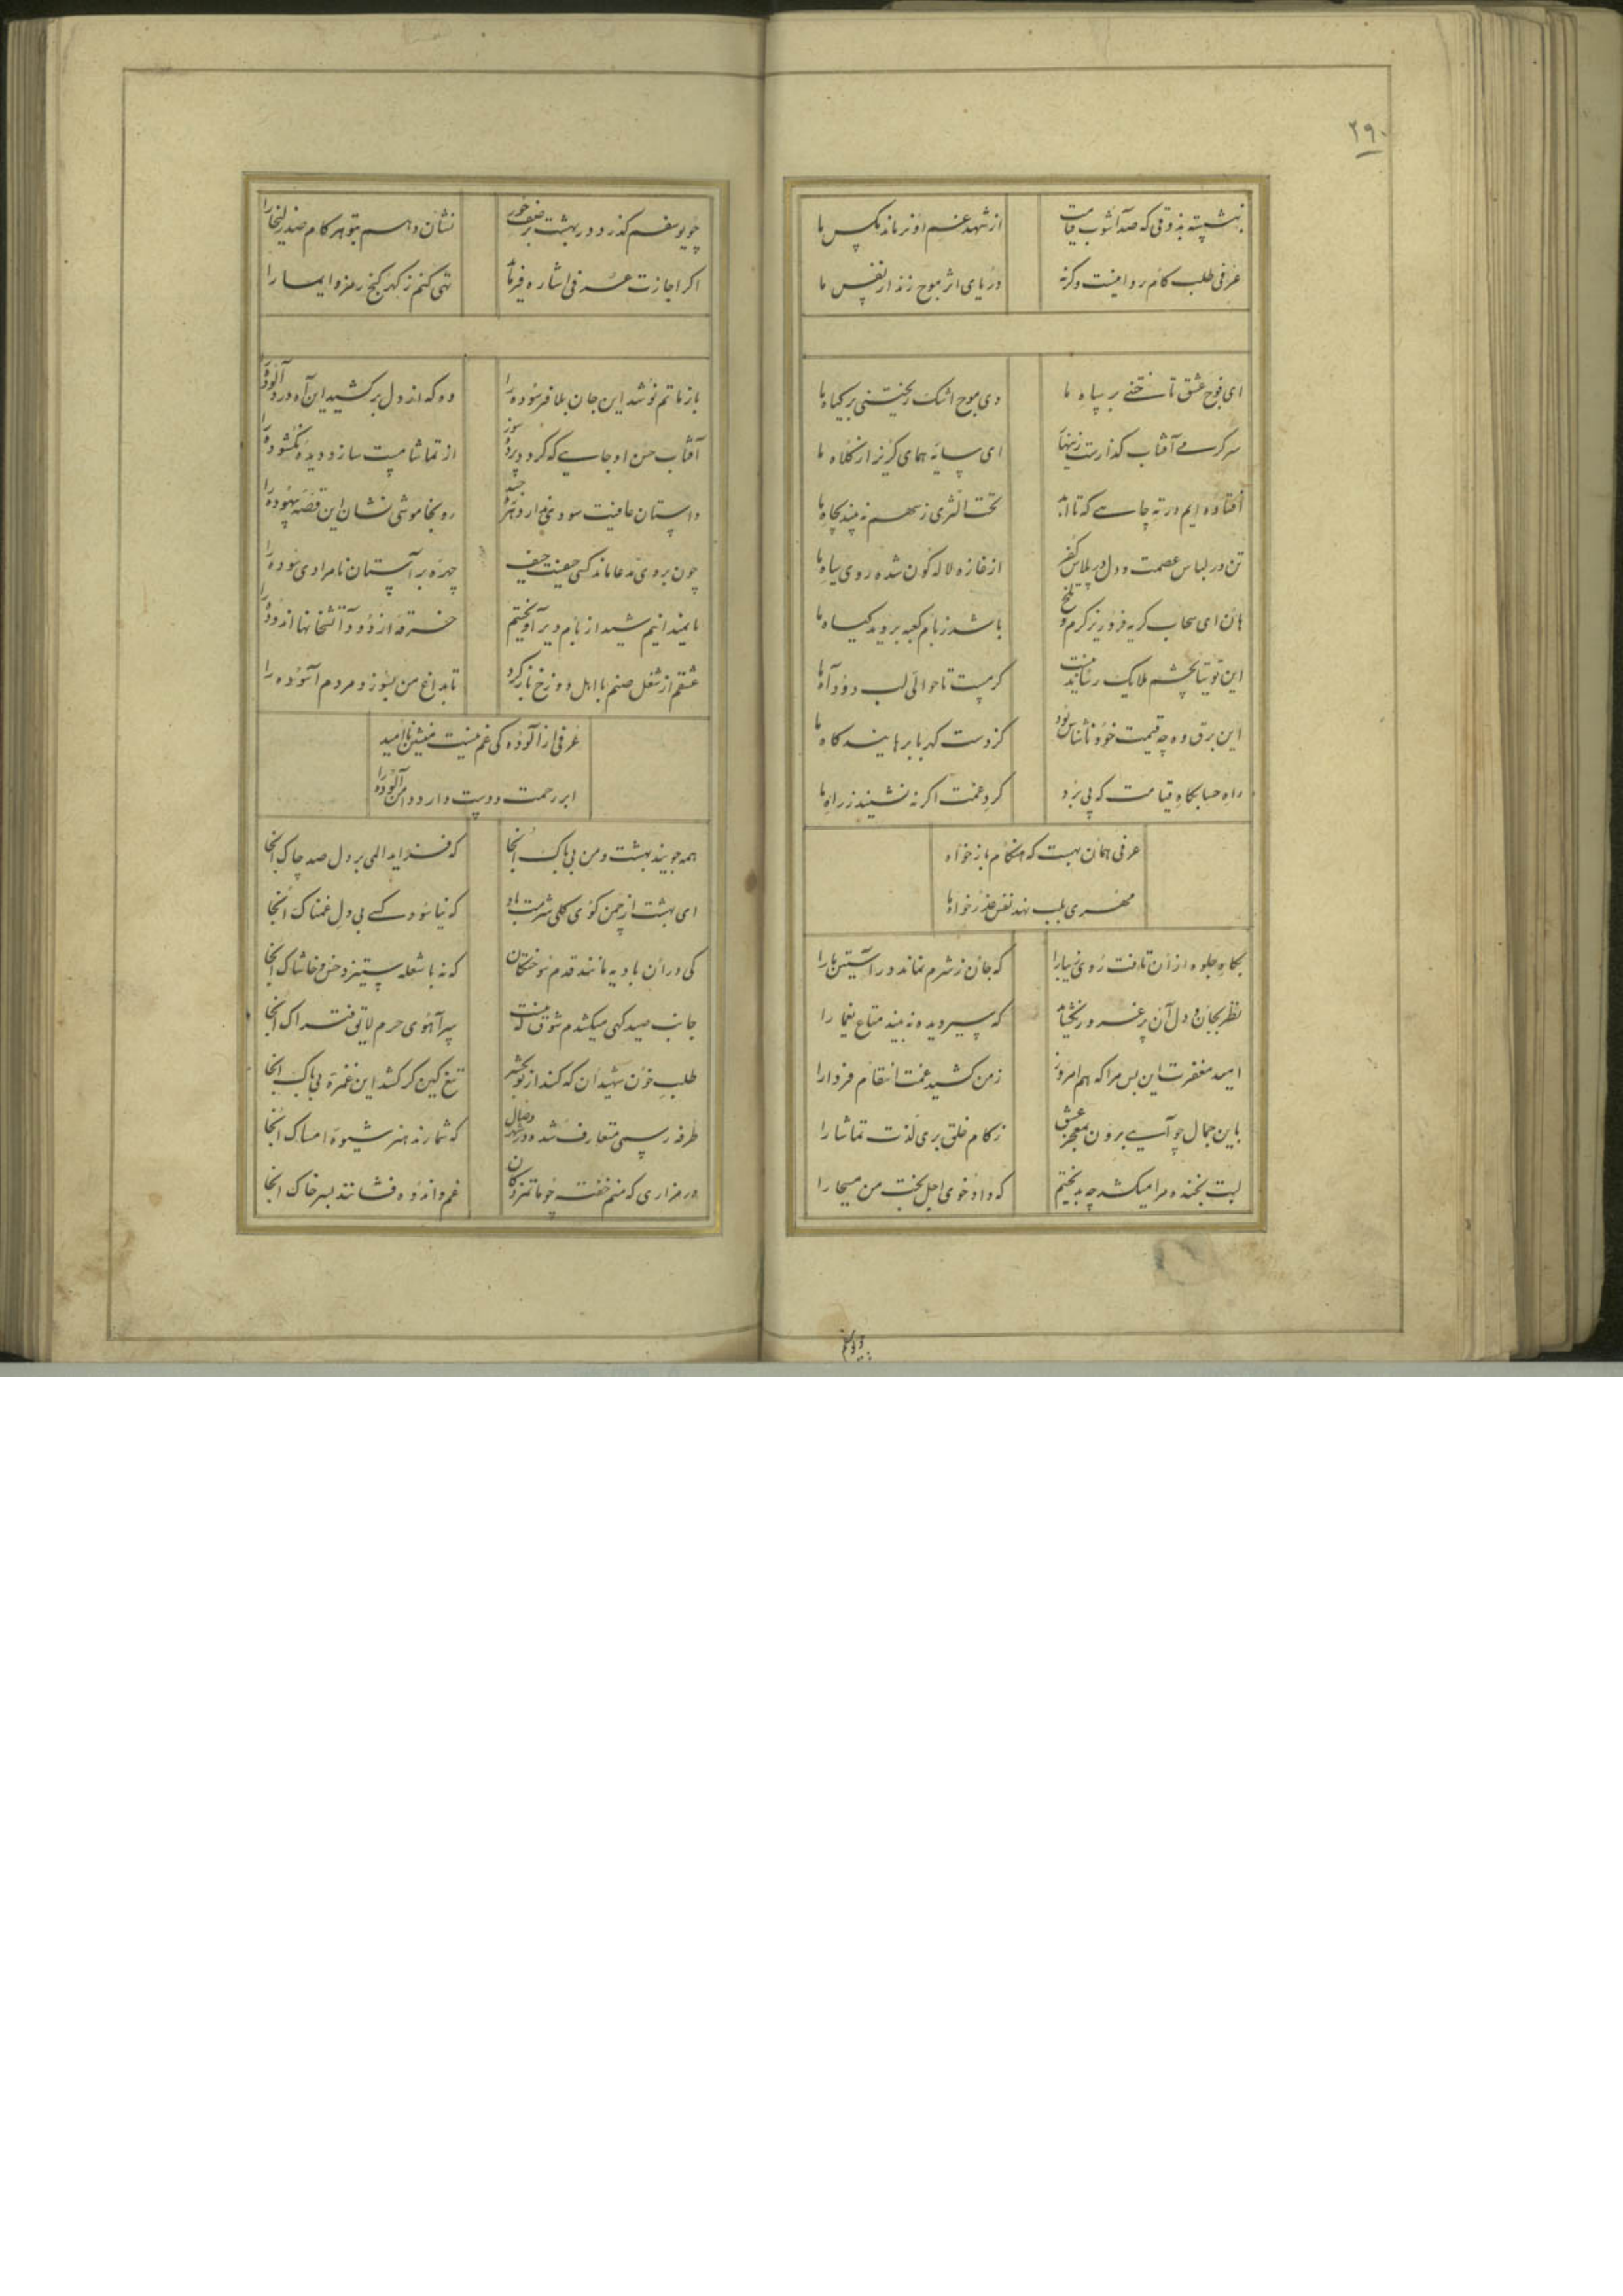 ۲۹۰
بنشسته بذوقی که صد آشوب قیامت از شهد غم او نرماند مکس ما
عرفی طلب کام روا نیست وکرنه دریای اثر موج زند از نفس ما
ای فوج عشق تاختنی بر سپاه ما وی موج اشک ریختنی بر کیاه ما
سرکرمی آفتاب کذارست ای سایه همای کریز از کلاه ما
افتاده ایم در ته چاهی که تا ابد تحت الثری ز سهم نه بیند بچاه ما
تن در لباس عصمت و دل در پلاس کفر از غازه لاله کون شده روی سیاه ما
هان ای سحاب کریه فرو ریز کرم و تلخ باشد ز بام کعبه بروید کیاه ما
این توتیا بچشم ملایک کرمست تا حوالی لب دود آه ما
این برق وه چه قیمت خود ناشناس بود کز دست کهربا برهایند کاه ما
راه حسابکاه قیامت که پی برد کرد غمت اکر نه نشیند ز راه ما
عرفی همان بهست که هنکام باز خواه
مهری بلب نهد نفس عذر خواه ما
بکاه جلوه از آن تافت روی زیبا را که جان ز شرم نماند در آستین ما را
نظر بجان و دل آن پر غرور نکشاید که سیر دیده نه بیند متاع یغما را
امید مغفرت این بس مرا که هم امروز ز من کشید غمت انتقام فردا را
باین جمال چو آیی برون بمعجز عشق ز کام خلق بری لذت تماشا را
لبت بخنده مرا میکشد چه بدبختیم که داد خوی اجل بخت من مسیحا را
چو یوسفم کذرد در بهشت بر صف حور نشان دهم بتو هر کام صد زلیخا را
اکر اجازت عرفی اشاره فرماید تهی کنم ز کهر کنج رمز و ایما را
باز ماتم نو شد این جان بلا فرسوده را وه که از دل برکشید این آه درد آلوده را
آفتاب حسن او جایی که کردد پرده سوز از تماشا مست سازد دیده نکشوده را
داستان عافیت سودی ندارد رو بخاموشی نشان این قصه بیهوده را
چون بروی مدعا ماند کسی حیفست حیف چهره بر آستان نامرادی سوده را
ما بمیدانیم شید از بام دیر آویختیم خرقه از دود آتشخانها اندوده را
عشقم از شغل صنم با اهل دوزخ باز کرد تا بداغ من بسوزد مردم آسوده را
عرفی از آلوده کی غم نیست منشین ناامید
ابر رحمت دوست دارد دامن آلوده را
همه جویند بهشت و من بی باک آنجا که فزاید المی بر دل صد چاک آنجا
ای بهشت از چمن کوی کلی شرمت باد که نیاسود کسی بی دل غمناک آنجا
کی در آن بادیه مانند قدم سوختکان که نه با شعله ستیزد خس و خاشاک آنجا
جانب صیدکهی میکشدم شوق که نیست سر آهوی حرم لایق فتراک آنجا
طلب خون شهیدان که کند از تو بحشر تیغ کین کر کشد این غمزه بی باک آنجا
طرفه رسمی متعارف شده در شهر وصال که شمارند هنر شیوه امساک آنجا
در مزاری که منم خفته چو ماتم زدکان غم و اندوه فشانند بسر خاک آنجا